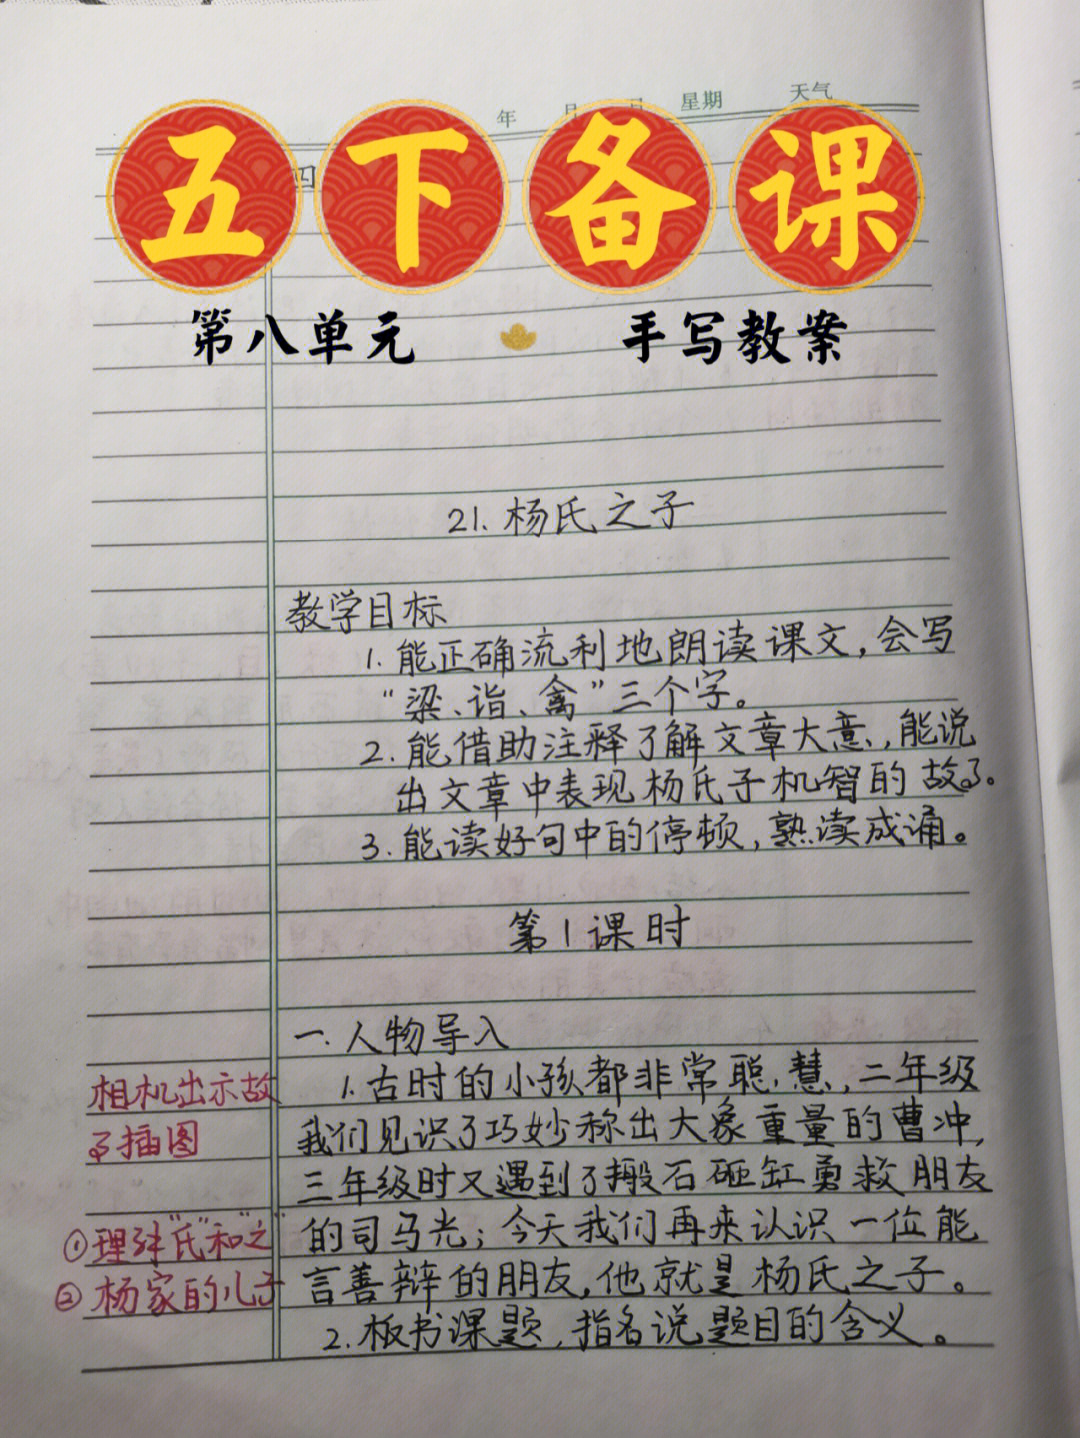 年 月 日 星期 天气
五下备课
四
第八单元 手写教案
21. 杨氏之子
教学目标
1. 能正确流利地朗读课文，会写
“梁、诣、禽”三个字。
2. 能借助注释了解文章大意，能说
出文章中表现杨氏子机智的故事。
3. 能读好句中的停顿，熟读成诵。
第1课时
一. 人物导入
相机出示故
事插图
1. 古时的小孩都非常聪慧，二年级
我们见识了巧妙称出大象重量的曹冲，
三年级时又遇到了搬石砸缸勇救朋友
①理解“氏”和“之”
②杨家的儿子
的司马光；今天我们再来认识一位能
言善辩的朋友，他就是杨氏之子。
2. 板书课题，指名说题目的含义。